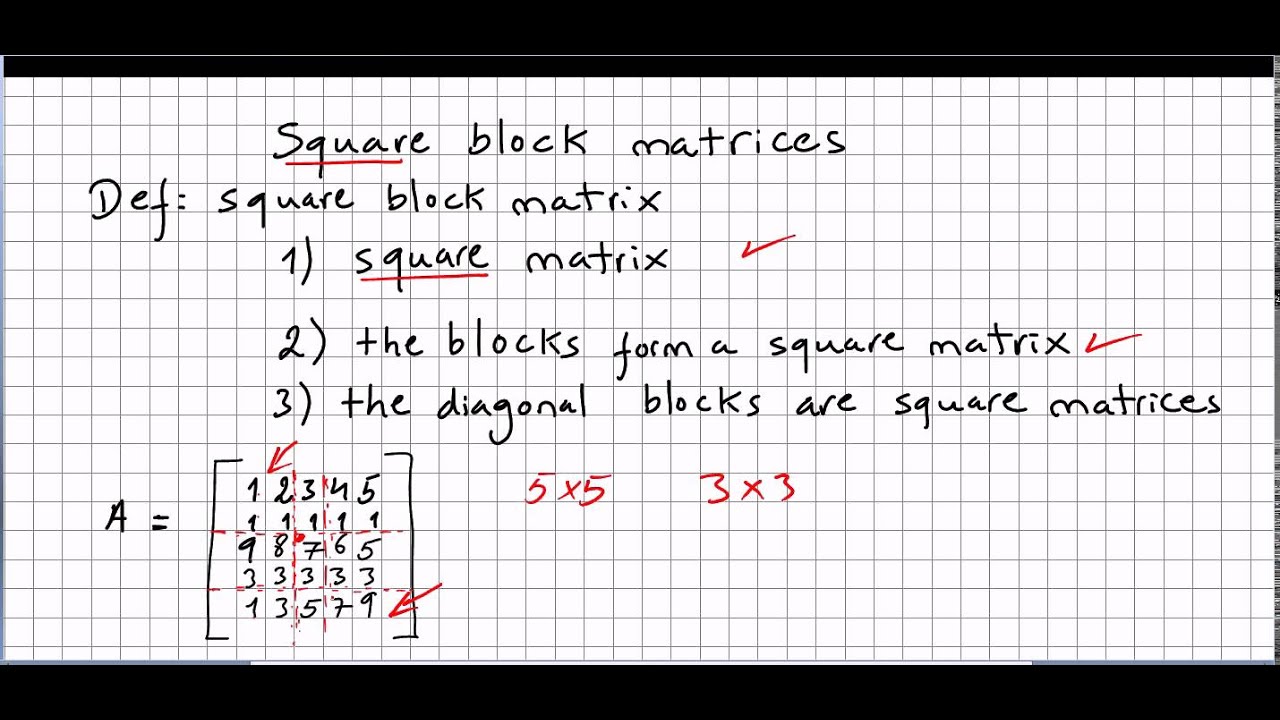 Square block matrices
Def: square block matrix
1) square matrix
2) the blocks form a square matrix
3) the diagonal blocks are square matrices
5×5 3×3
1 2 3 4 5
A = 1 1 1 1 1
9 8 7 6 5
3 3 3 3 3
1 3 5 7 9